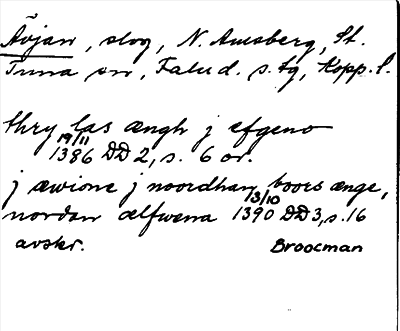 Ävjan, slog, N. Amsberg, St.
Tuna sn, Falu d. s. tg, Kopp. l.
thry las ængh j efgeno
19/11
1386 DD 2, s. 6 or.
j æwione j noordhan boors ænge,
13/10
nordan ælfwena 1390 DD 3, s. 16
avskr. Broocman